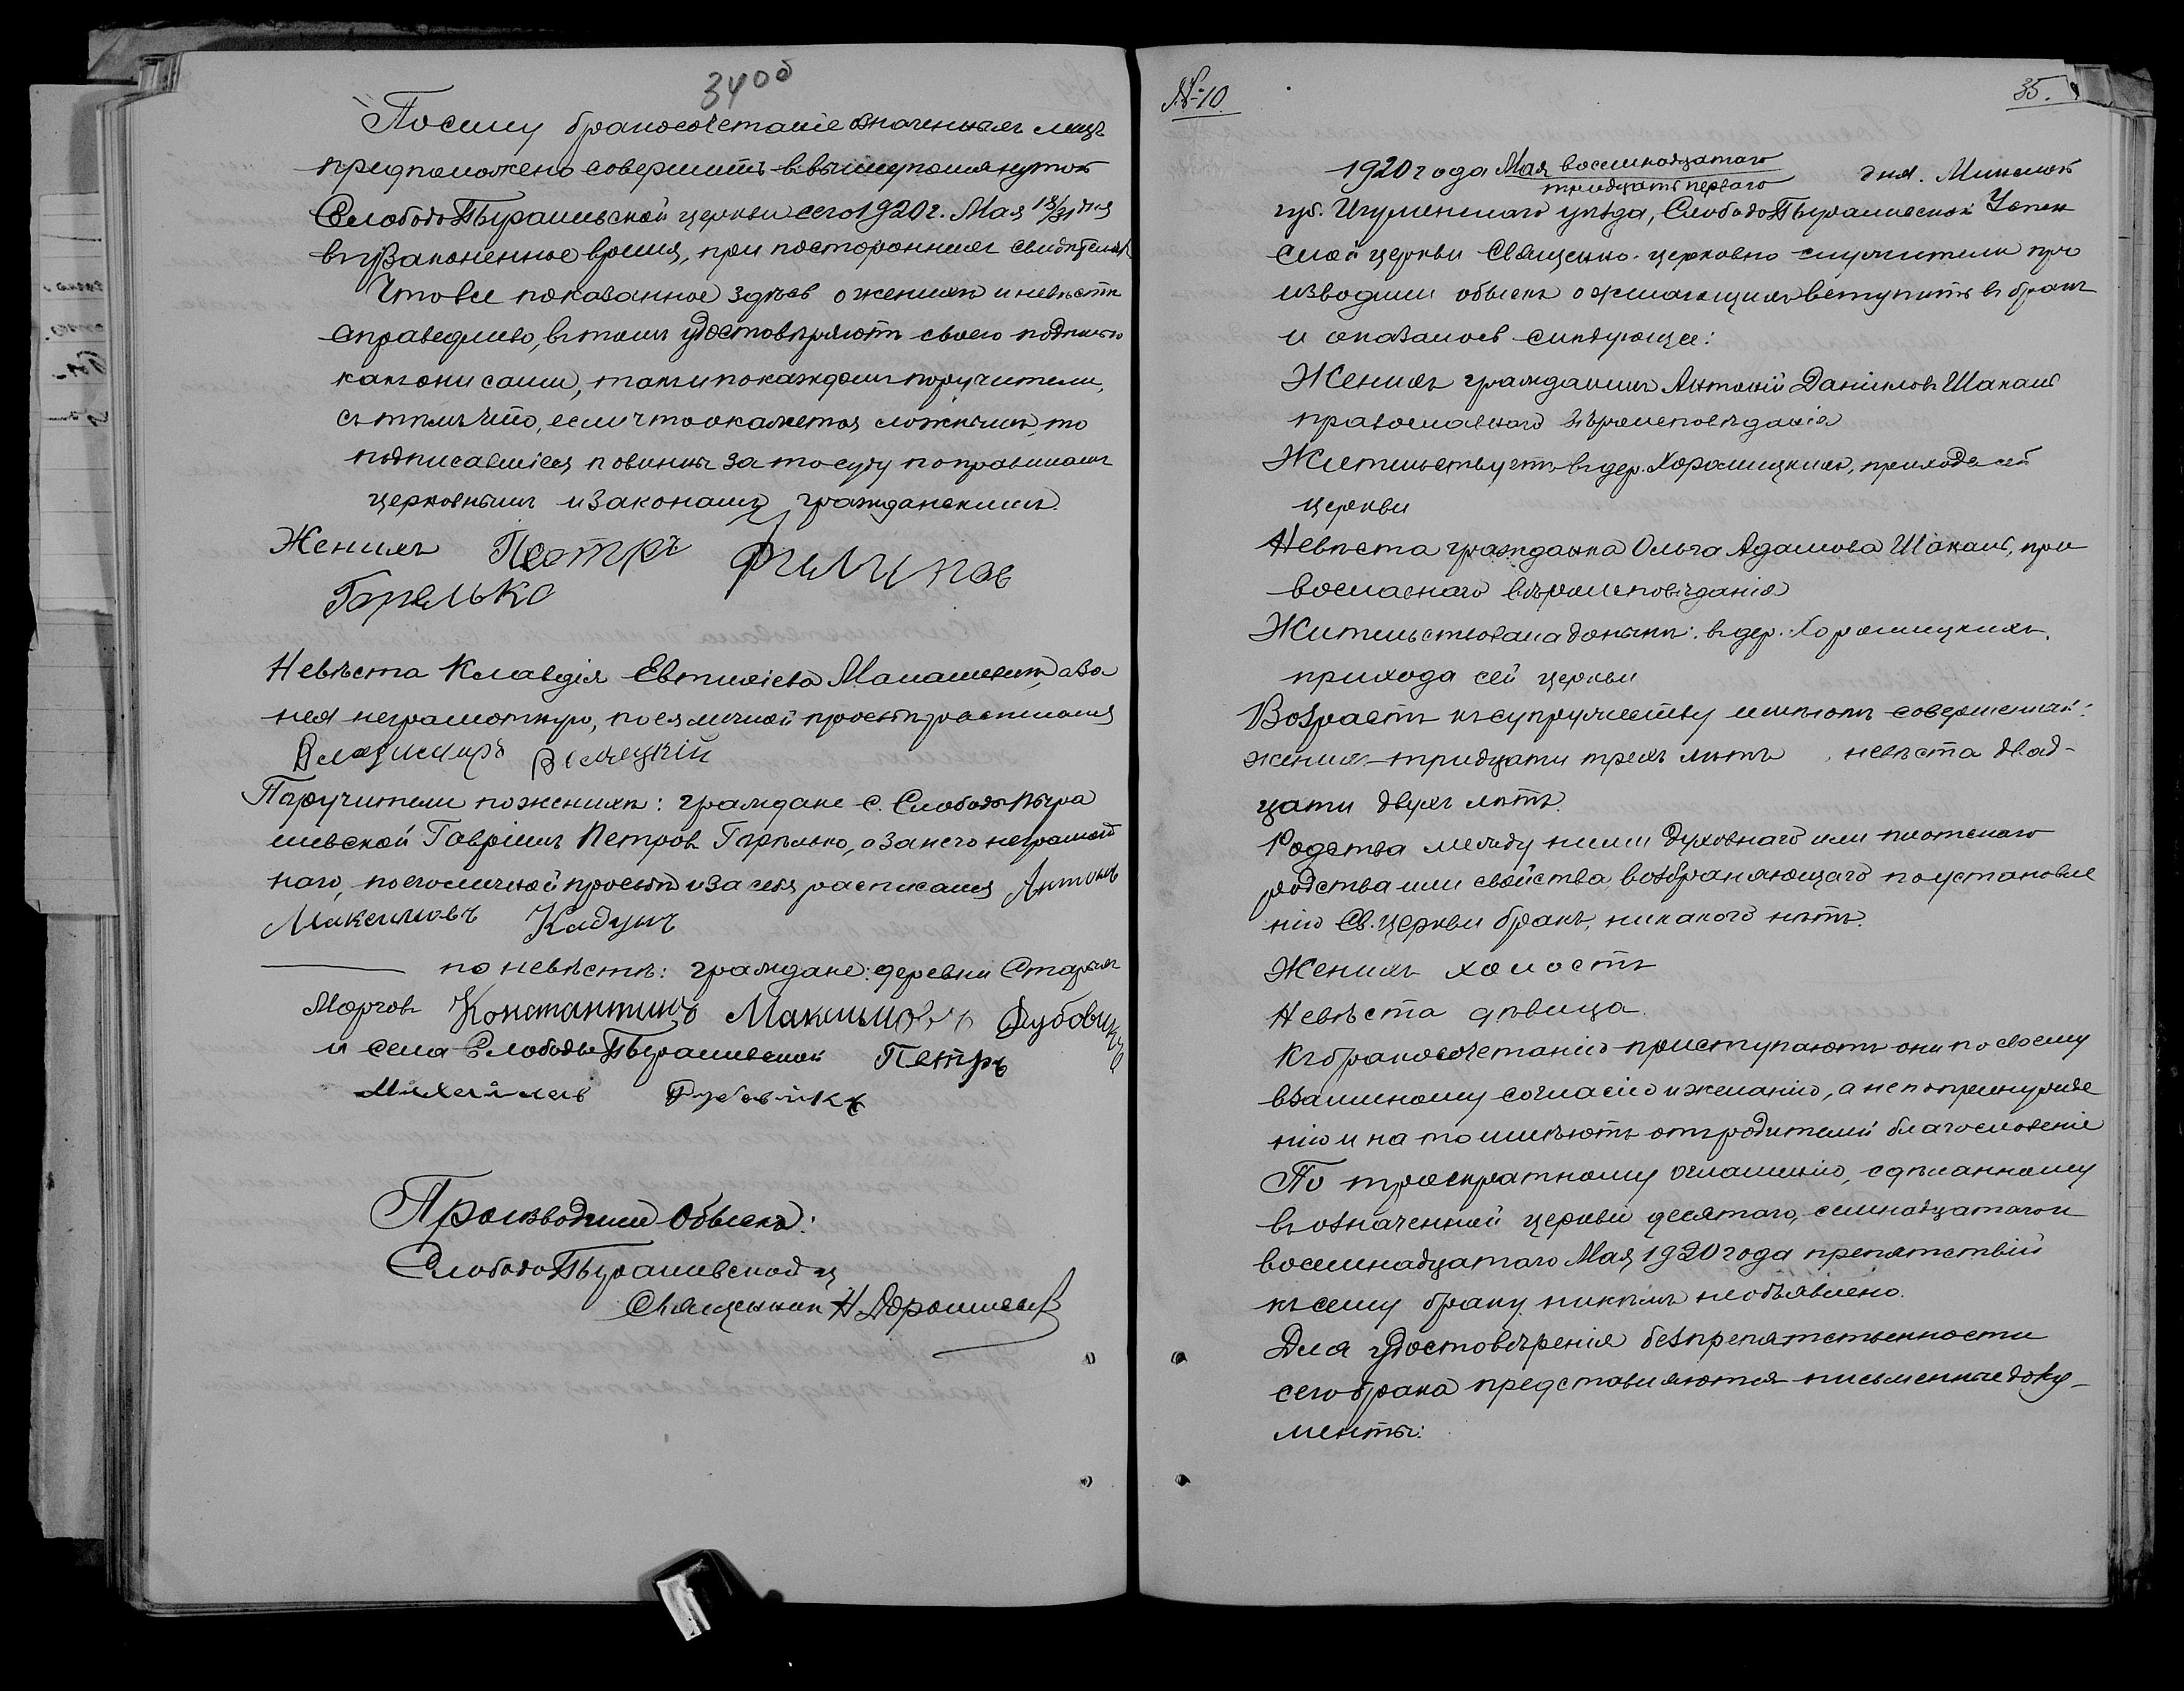 34об
Посему бракосочетаніе означенныхъ лицъ
предположено совершить в вышеупомянутой
СлободоПырашевской церкви сего 1920 г. Мая 18/31 дня
въ узаконенное время, при постороннихъ свидѣтеляхъ
Что все показанное здѣсь о женихѣ и невѣстѣ
справедливо, въ томъ удостовѣряютъ своею подписью
какъ они сами, такъ и по каждомъ поручители,
съ тѣмъ что, если что окажется ложнымъ, то
подписавшіеся повинны за то суду по правиламъ
церковнымъ и законамъ гражданскимъ.
Женихъ Пеотръ Филипов
Гарелько
Невѣста Клавдія Евтихіева Манашевичъ, а за
нея неграмотную, по ея личной просьбѣ росписался
Владимиръ
Поручители по женихѣ: граждане с. Слободы Пыра
шевской Гавріилъ Петров Горѣлько, а за него неграмот
наго, по его личной просьбѣ и за себя расписался Антонъ
Максимовъ Кадунъ
по невѣстѣ: граждане: деревни Старыхъ
Моргов Константинъ Максимовъ Дубовикъ
и села Слободы Пырашевской Петръ
Михайлав Дубовикъ
Производили обыскъ:
СлободоПырашевской ц
Священник Н Дорошевъ
№ 10. 35.
1920 года Мая восемнадцатаго
тридцать перваго дня. Минской
губ. Игуменскаго уѣзда, СлободоПырашевской Успен
ской церкви Священно-церковно-служители про
изводили обыскъ о желающихъ вступить въ бракъ
и оказалось слѣдующее:
Женихъ гражданинъ Антоній Даніиловъ Шакаль
православнаго вѣроисповѣданія
Жительствуетъ въ дер. Хоромицкихъ, прихода сей
церкви
Невѣста гражданка Ольга Адамова Шакаль, пра
вославнаго вѣроисповѣданія
Жительствовала донынѣ: въ дер. Хоромицкихъ,
прихода сей церкви
Возрастъ къ супружеству имѣютъ совершенный:
женихъ – тридцати трехъ лѣтъ, невѣста двад-
цати двухъ лѣтъ.
Родства между ними духовнаго или плотскаго
родства или свойства, возбраняющаго по установле
нію Св. Церкви бракъ, никакого нѣтъ.
Женихъ холостъ
Невѣста дѣвица
Къ бракосочетанію приступаютъ они по своему
взаимному согласію и желанію, а не по принужде
нію и на то имѣютъ отъ родителей благословеніе
По троекратному оглашенію, сдѣланному
въ означенной церкви десятаго, семнадцатаго и
восемнадцатаго Мая 1920 года препятствій
къ сему браку никѣмъ не объявлено.
Для удостовѣренія безпрепятственности
сего брака представляются письменные доку-
менты: